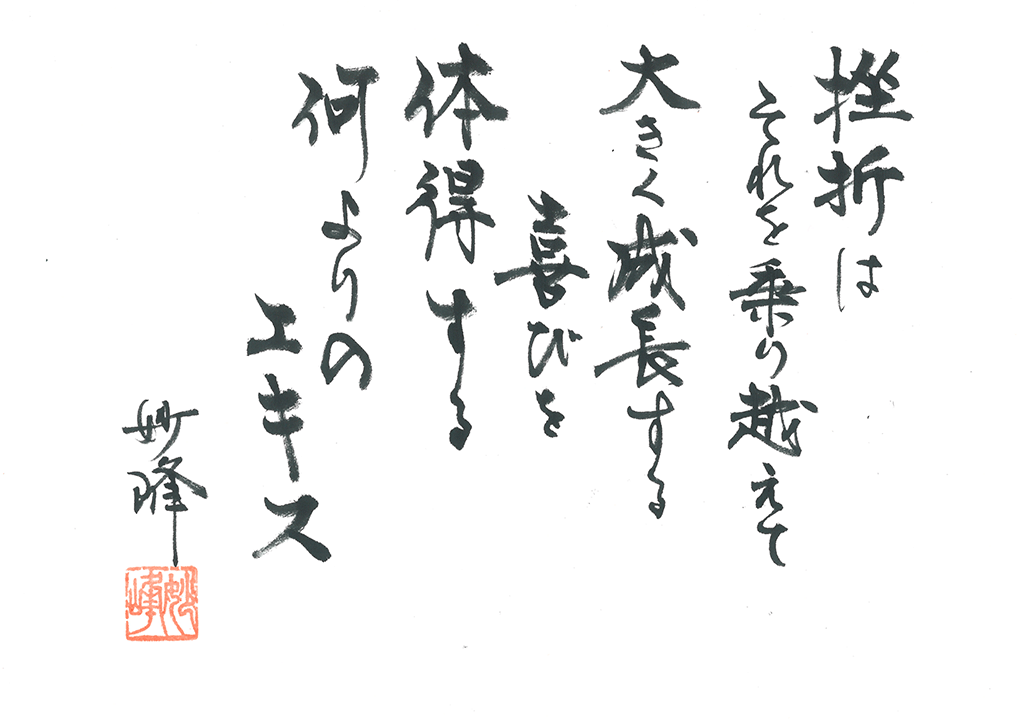 挫折は
それを乗り越えて
大きく成長する
喜びを
体得する
何よりの
エキス
妙峰
妙峰